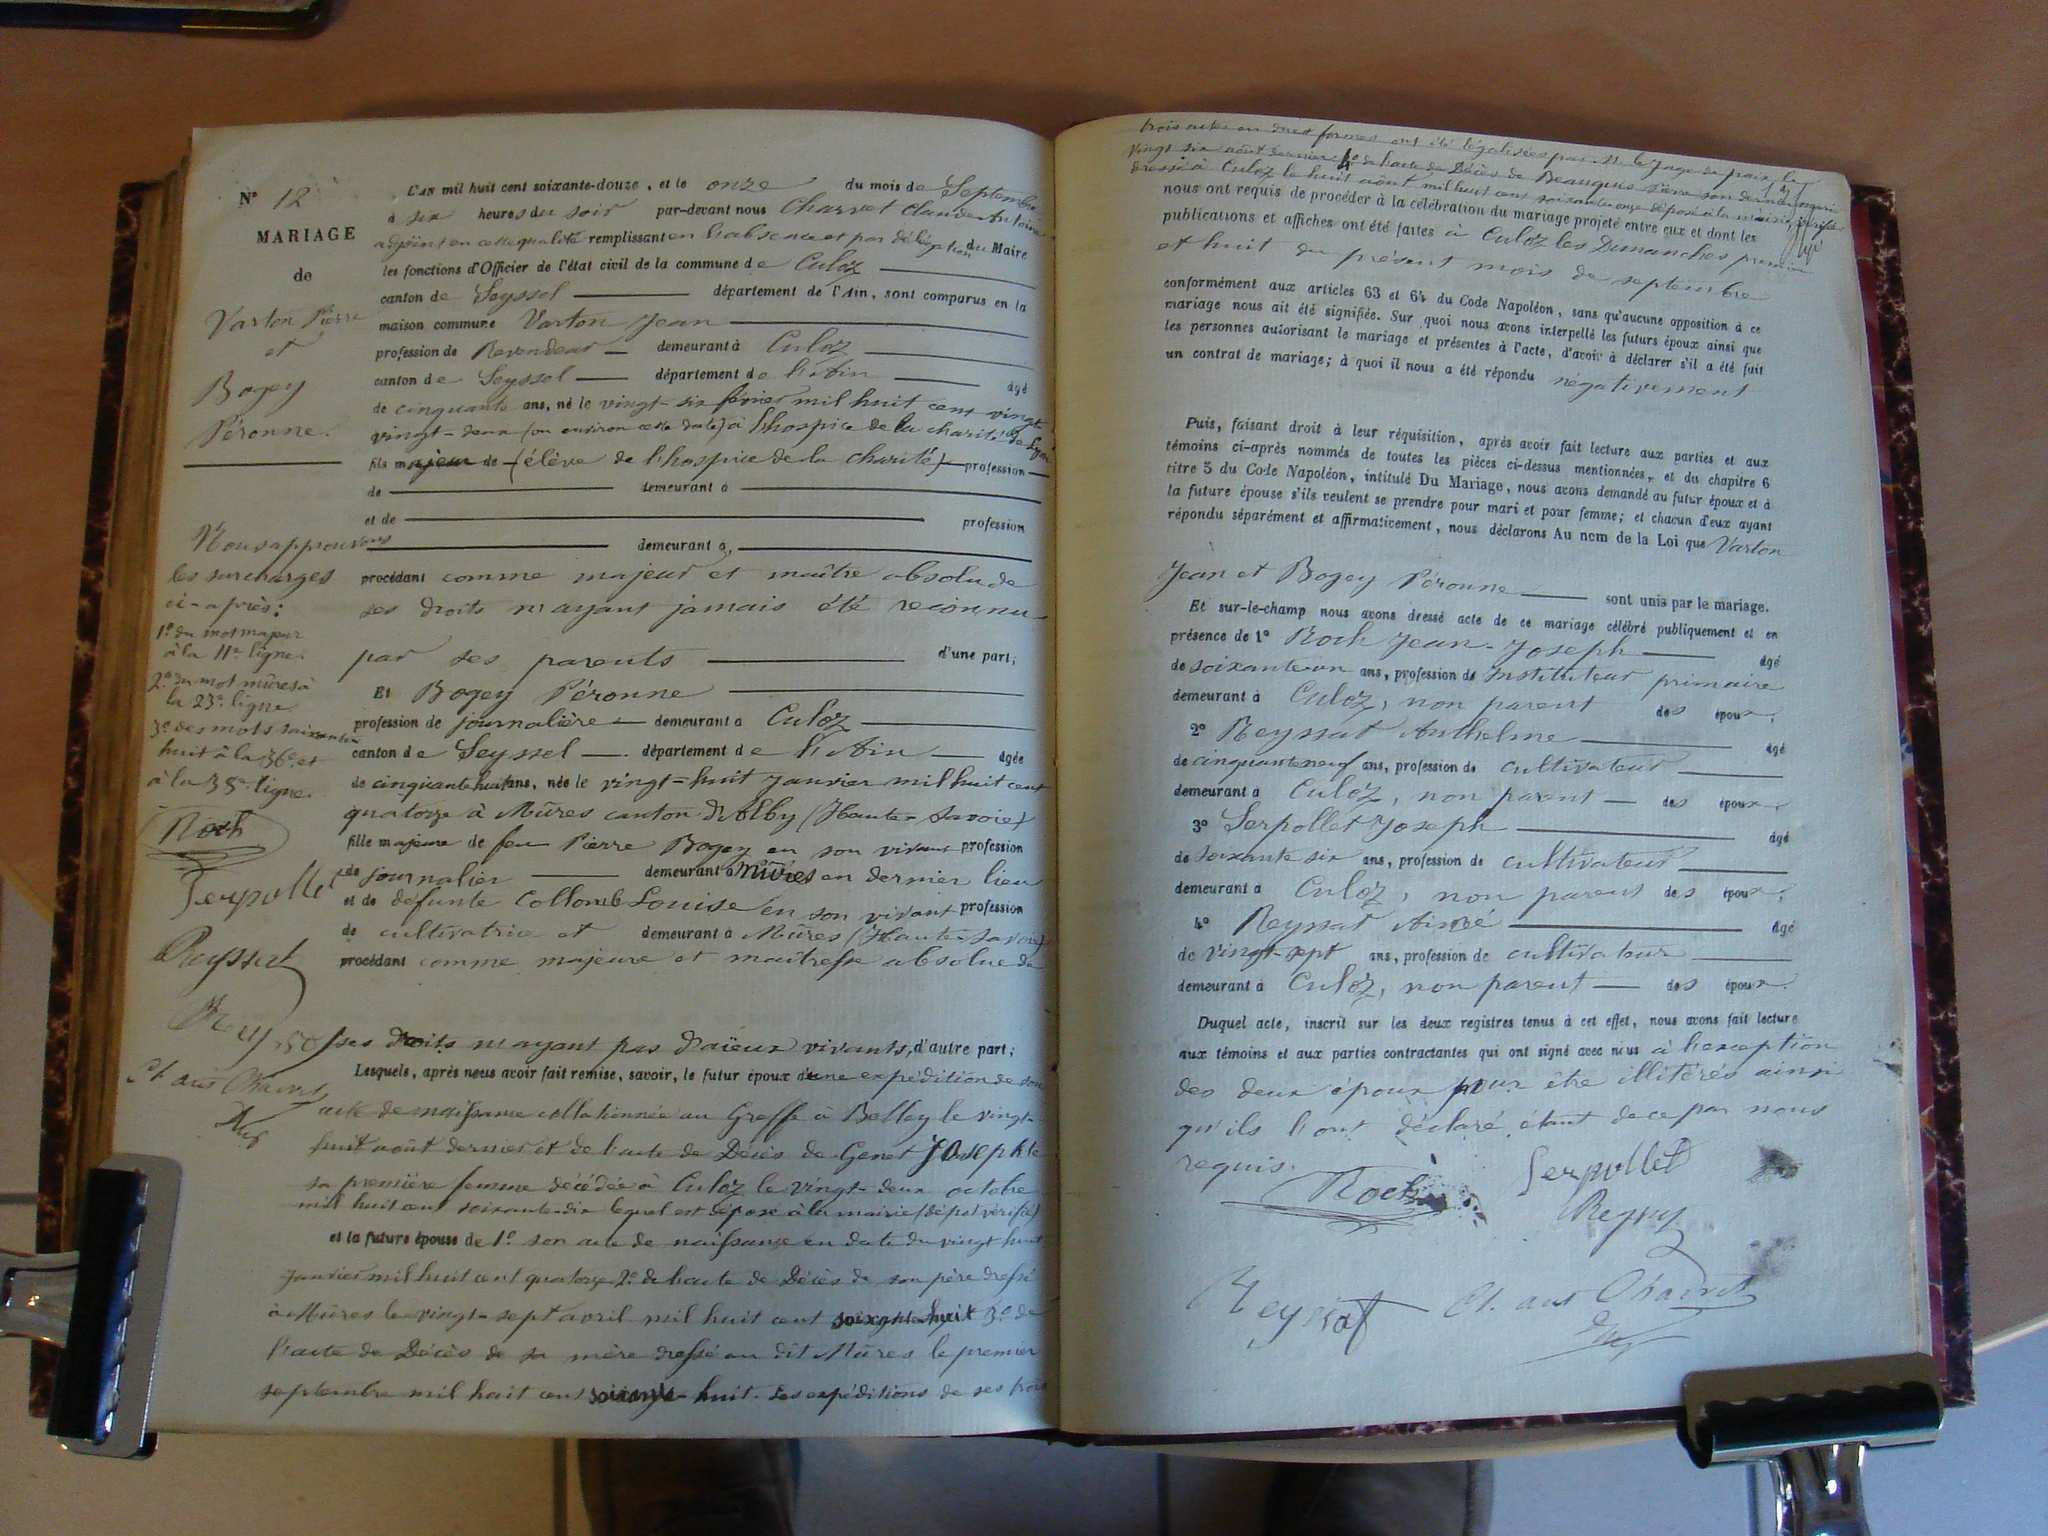 N° 12
MARIAGE
de
Varton Pierre
et
Bogey
Péronne.
Nous approuvons
les surcharges
ci-après:
1° du mot majeur
à la 11e ligne.
2° du mot mûres à
la 23e ligne
3° des mots soixante
huit à la 36e et
à la 38e ligne.
Roch
Serpollet
Reyssat
Cl. ant Charvet
L'AN mil huit cent soixante-douze, et le onze du mois de Septembre
à six heures du soir par-devant nous Charvet Claude Antoine
adjoint en cette qualité remplissant en l'absence et par délégation du Maire
les fonctions d'Officier de l'état civil de la commune de Culoz
canton de Seyssel département de l'Ain, sont comparus en la
maison commune Varton Jean
profession de Revendeur demeurant à Culoz
canton de Seyssel département de l'Ain âgé
de cinquante ans, né le vingt-six février mil huit cent vingt
vingt-deux (ou environ cette date) à l'hospice de la charité de Lyon
fils majeur de (élève de l'hospice de la charité) profession
de demeurant à
et de profession
demeurant à
procédant comme majeur et maître absolu de
ses droits n'ayant jamais été reconnu
par ses parents d'une part;
Et Bogey Péronne
profession de journalière demeurant à Culoz
canton de Seyssel département de l'Ain âgée
de cinquante huit ans, née le vingt-huit janvier mil huit cent
quatorze à Mûres canton d'Alby (Haute-Savoie)
fille majeure de feu Pierre Bogey en son vivant profession
de journalier demeurant à Mûres en dernier lieu
et de défunte Collomb Louise en son vivant profession
de cultivatrice et demeurant à Mûres (Haute-Savoie)
procédant comme majeure et maîtresse absolue de
ses droits n'ayant pas d'aïeux vivants, d'autre part;
Lesquels, après nous avoir fait remise, savoir, le futur époux d'une expédition de son
acte de naissance collationnée au Greffe à Belley le vingt-
huit août dernier et de l'acte de Décès de Genet Josephte
sa première femme décédée à Culoz le vingt-deux octobre
mil huit cent soixante-dix lequel est déposé à la mairie (dépôt vérifié)
et la future épouse de 1° son acte de naissance en date du vingt huit
janvier mil huit cent quatorze 2° de l'acte de Décès de son père dressé
à Mûres le vingt-sept avril mil huit cent soixante-huit 3° de
l'acte de Décès de sa mère dressé au dit Mûres le premier
septembre mil huit cent soixante-huit. Les expéditions de ses trois
trois actes en dues formes ont été légalisées par M. le Juge de paix le
vingt six août dernier 4° de l'acte de Décès de Beauquis Pierre son dernier mari
dressé à Culoz le huit août mil huit cent soixante onze déposé à la mairie, vérifié
nous ont requis de procéder à la célébration du mariage projeté entre eux et dont les
publications et affiches ont été faites à Culoz les Dimanches premier
et huit du présent mois de septembre
conformément aux articles 63 et 64 du Code Napoléon, sans qu'aucune opposition à ce
mariage nous ait été signifiée. Sur quoi nous avons interpellé les futurs époux ainsi que
les personnes autorisant le mariage et présentes à l'acte, d'avoir à déclarer s'il a été fait
un contrat de mariage; à quoi il nous a été répondu négativement
Puis, faisant droit à leur réquisition, après avoir fait lecture aux parties et aux
témoins ci-après nommés de toutes les pièces ci-dessus mentionnées, et du chapitre 6
titre 5 du Code Napoléon, intitulé Du Mariage, nous avons demandé au futur époux et à
la future épouse s'ils veulent se prendre pour mari et pour femme; et chacun d'eux ayant
répondu séparément et affirmativement, nous déclarons Au nom de la Loi que Varton
Jean et Bogey Péronne sont unis par le mariage.
Et sur-le-champ nous avons dressé acte de ce mariage célébré publiquement et en
présence de 1° Roch Jean-Joseph âgé
de soixante-un ans, profession de Instituteur primaire
demeurant à Culoz, non parent des époux.
2° Reyssat Anthelme âgé
de cinquante neuf ans, profession de cultivateur
demeurant à Culoz, non parent des époux
3° Serpollet Joseph âgé
de soixante six ans, profession de cultivateur
demeurant à Culoz, non parent des époux.
4° Reyssat Aimé âgé
de vingt-sept ans, profession de cultivateur
demeurant à Culoz, non parent des époux.
Duquel acte, inscrit sur les deux registres tenus à cet effet, nous avons fait lecture
aux témoins et aux parties contractantes qui ont signé avec nous à l'exception
des deux époux pour être illitérés ainsi
qu'ils l'ont déclaré étant de ce par nous
requis.
Roch
Serpollet
Reyssat
Cl. ant Charvet